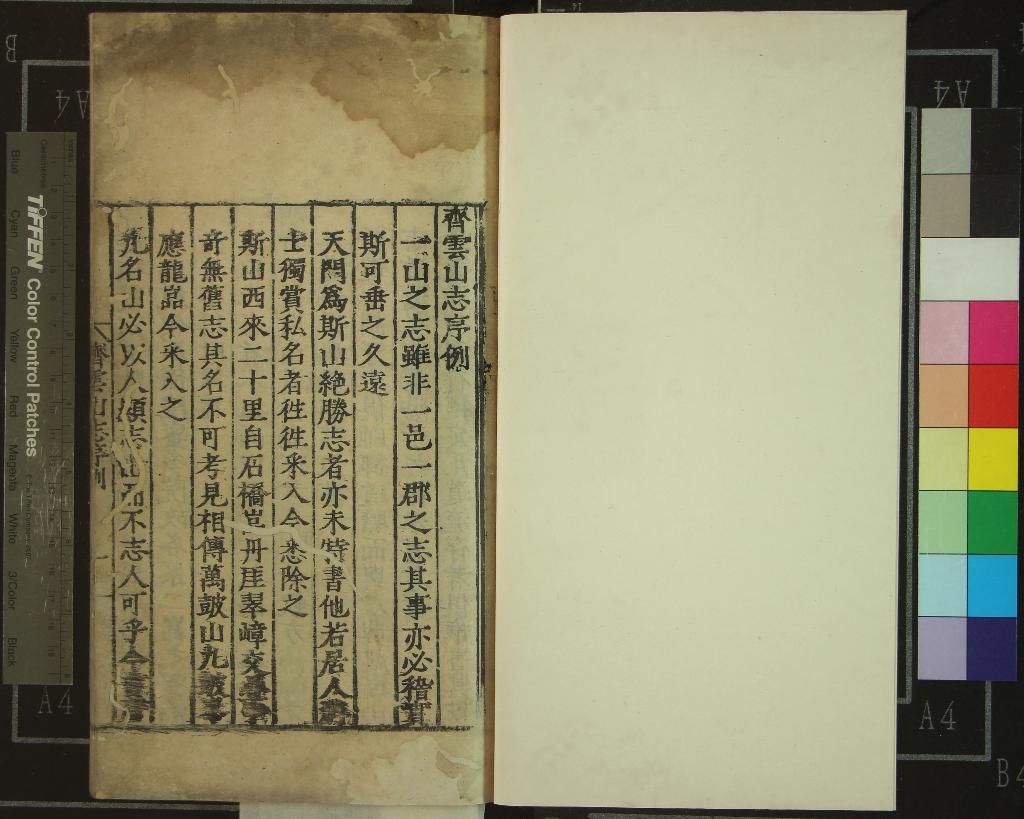 齊雲山志序例
一山之志雖非一邑一郡之志其事亦必稽實
斯可垂之久遠
天門爲斯山絶勝志者亦未特書他若居人
士獨賞私名者徃徃采入今悉除之
斯山西來二十里自石橋豈丹厓翠嶂交
奇無舊志其名不可考見相傳萬皷山九
應龍嵓今采入之
凢名山必以人顯志山而不志人可乎今
齊雲山志序例
一
TIFFEN Color Control Patches
Blue
Cyan
Green
Yellow
Red
Magenta
White
3/Color
Black
A4
A4
A4
A4
B4
B